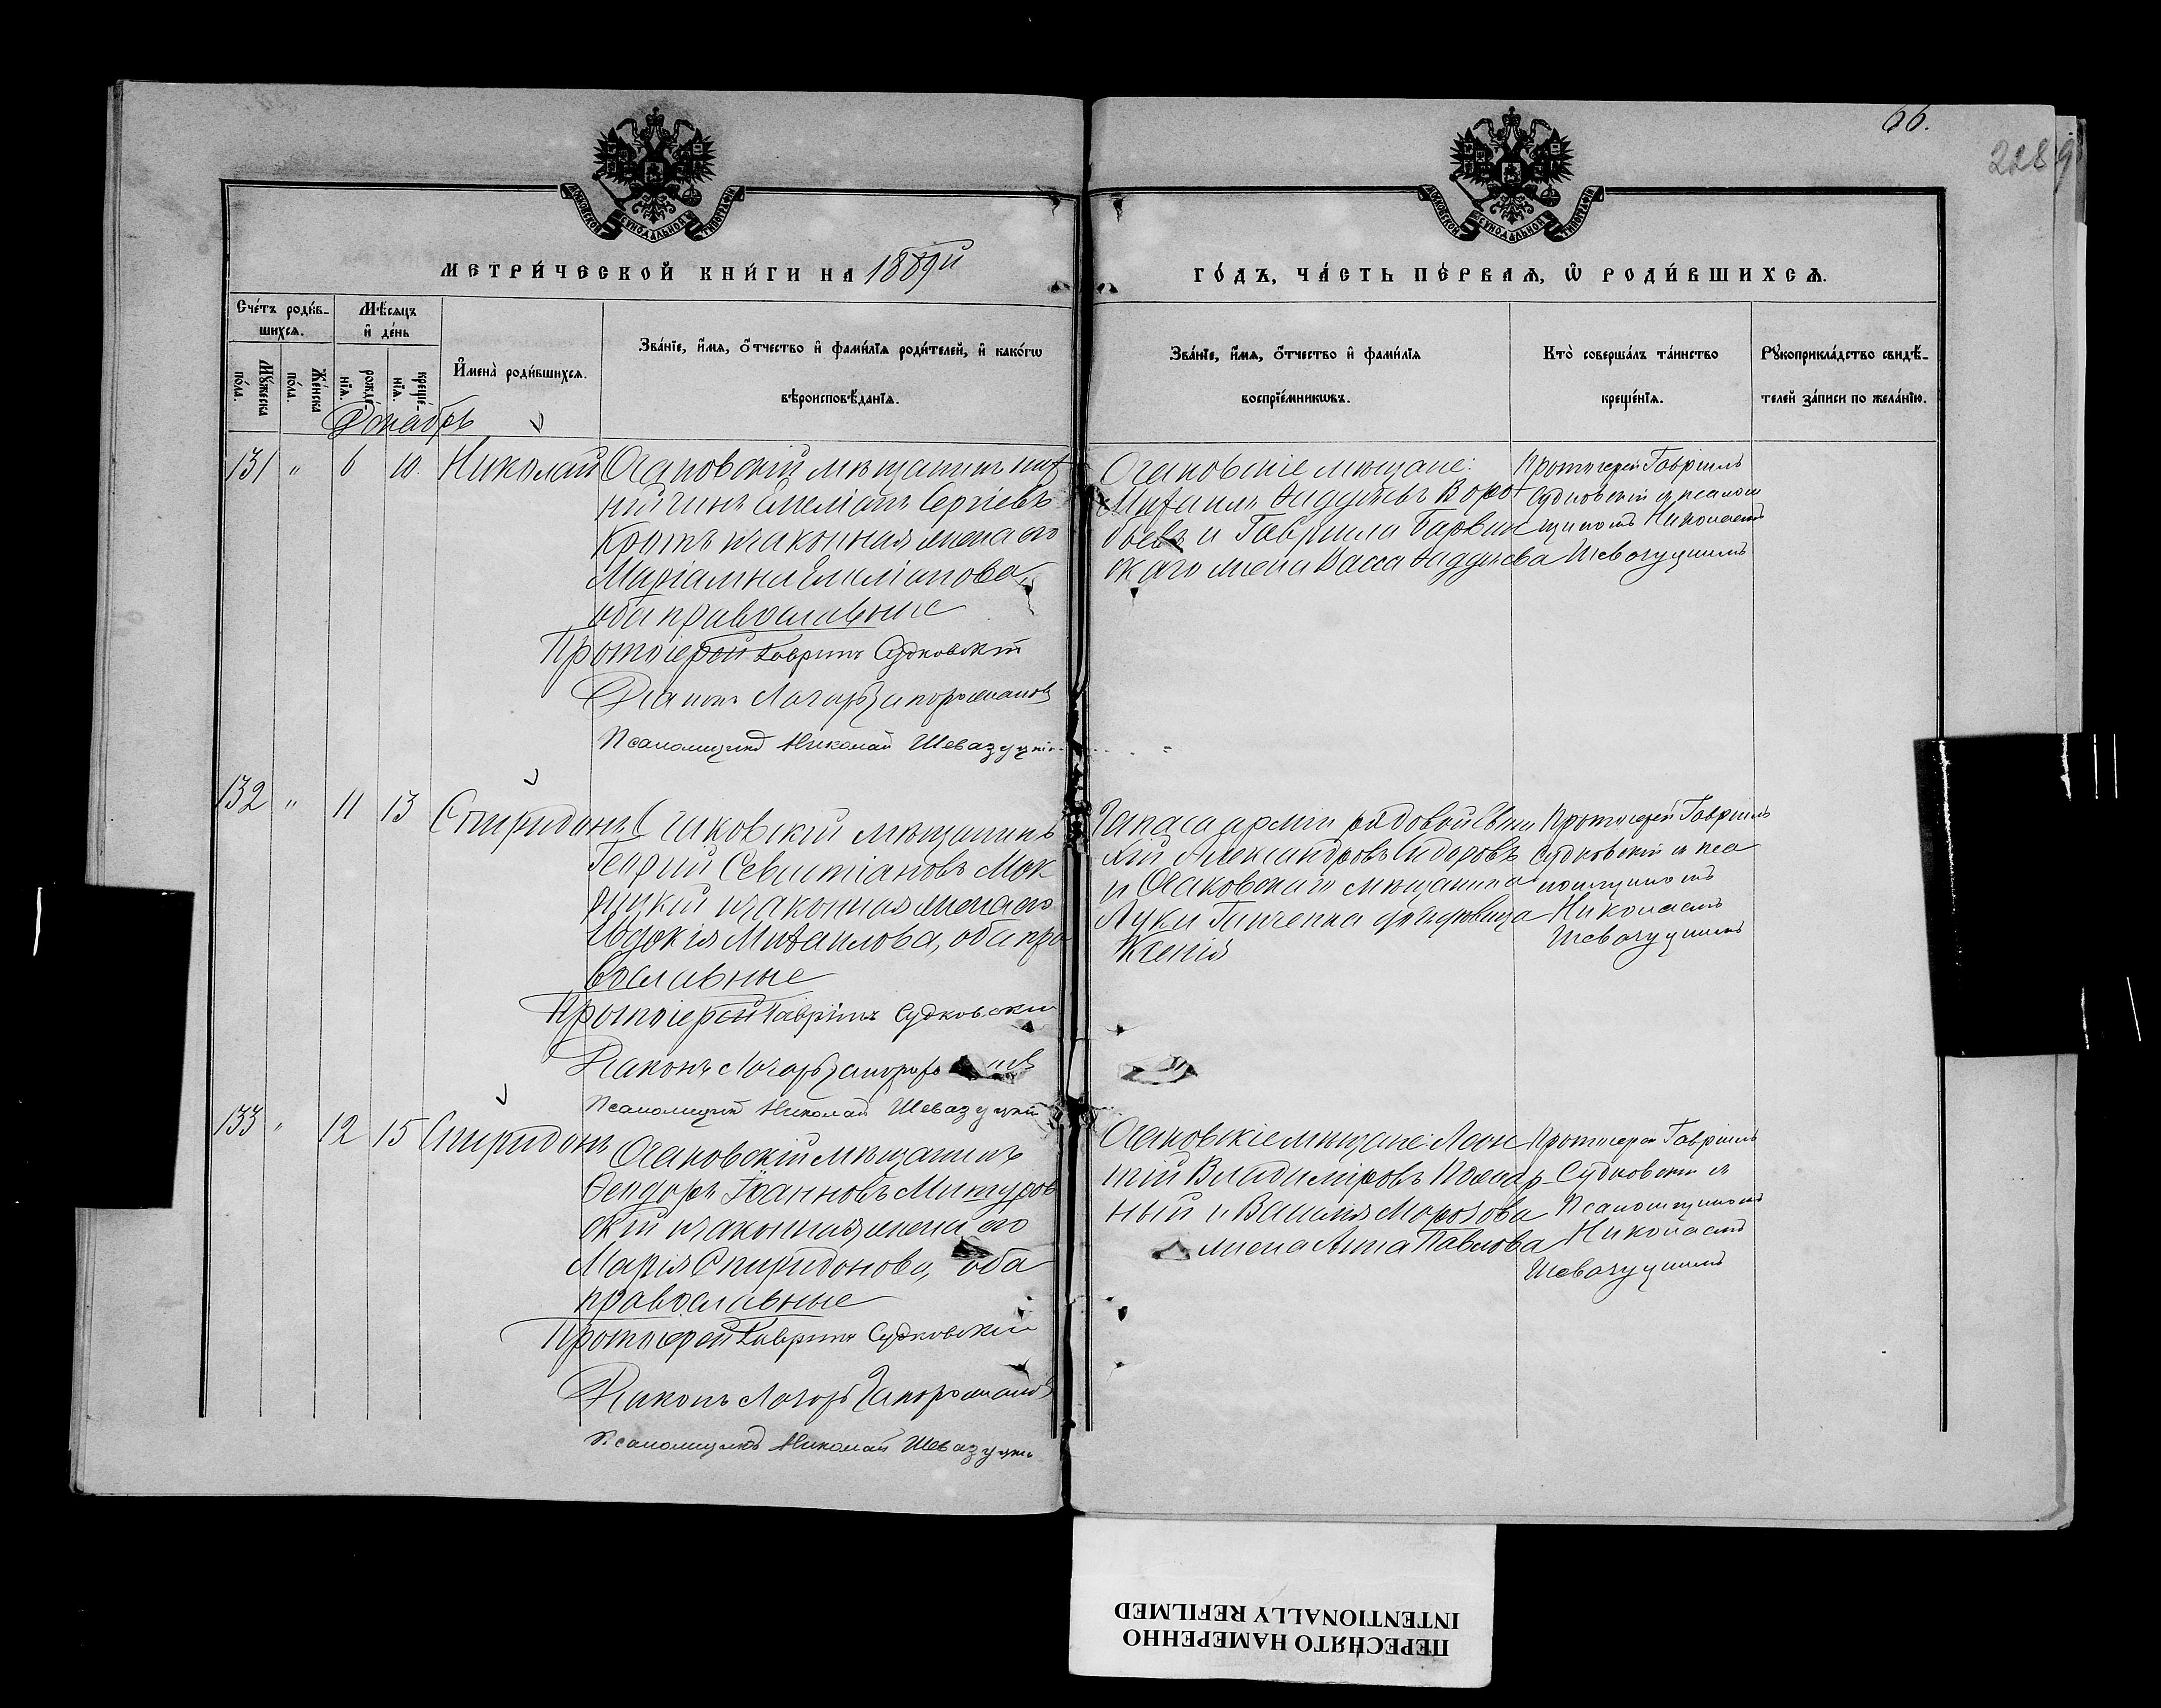 66.
228
МОСКОВСКОЙ СѴНОДАЛЬНОЙ ТИПОГРАФІИ
МОСКОВСКОЙ СѴНОДАЛЬНОЙ ТИПОГРАФІИ
МЕТРИ́ЧЕСКОЙ КНИ́ГИ НА 1889й
ГО́ДЪ, ЧА́СТЬ ПЕ́РВАѦ, Ѡ҆ РОДИ́ВШИХСѦ.
Сче́тъ роди́в-
шихсѧ.
Мѣ́сѧцъ
и҆ де́нь
Мꙋ́жеска
по́ла.
Же́нска
по́ла.
рожде́-
нїѧ.
креще́-
нїѧ.
И҆мена̀ роди́вшихсѧ.
Зва́нїе, и҆́мѧ, о҆́тчество и҆ фами́лїѧ роди́телей, и҆ како́гѡ
вѣроисповѣ́данїѧ.
Зва́нїе, и҆́мѧ, о҆́тчество и҆ фами́лїѧ
воспрїе́мникѡвъ.
Кто̀ соверша́лъ та́инство
креще́нїѧ.
Рꙋкоприкла́дство свидѣ́-
телей за́писи по жела́нїю.
Декабрь
131 " 6 10. Николай Очаковскій мѣщанинъ
Емеліанъ Сергіевъ
Кротъ и законная жена его
Маріамна Емеліанова,
оба православные
Протоіерей Гавріилъ Судковскій
Діаконъ Лазарь Запорожановъ
Псаломщикъ Николай Шевазуцкій
Очаковскіе мѣщане:
Михаилъ Фаддѣевъ Воро-
бьевъ и Гавріила
скаго жена Васса Фаддѣева
Протоіерей Гавріилъ
Судковскій съ псалом
щикомъ Николаемъ
Шевазуцкимъ
132 " 11 13 Спиридонъ Очаковскій мѣщанинъ
Георгій Севастіановъ Мок
рицкій и законная жена его
Евдокія Михаилова, оба пра
вославные
Протоіерей Гавріилъ Судковскій
Діаконъ Лазарь
Псаломщикъ Николай Шевазуцкій
Запаса арміи рядовой Евге
ній Александровъ Сидоровъ
и Очаковскаго мѣщанина
Луки Гинченка
Ксенія
Протоіерей Гавріилъ
Судковскій съ пса
ломщикомъ
Николаемъ
Шевазуцкимъ
133 " 12 15 Спиридонъ Очаковскій мѣщанинъ
Ѳеодоръ Іоанновъ Митуров
скій и законная жена его
Марія Спиридонова, оба
православные
Протоіерей Гавріилъ Судковскій
Діаконъ Лазарь Запорожановъ
Псаломщикъ Николай Шевазуцкій
Очаковскіе мѣщане: Леон
тій Владиміровъ Пожар-
ный и Василія Морозова
жена Анна Павлова
Протоіерей Гавріилъ
Судковскій съ
Псаломщикомъ
Николаемъ
Шевазуцкимъ
ПЕРЕСНЯТО НАМЕРЕННО
INTENTIONALLY REFILMED